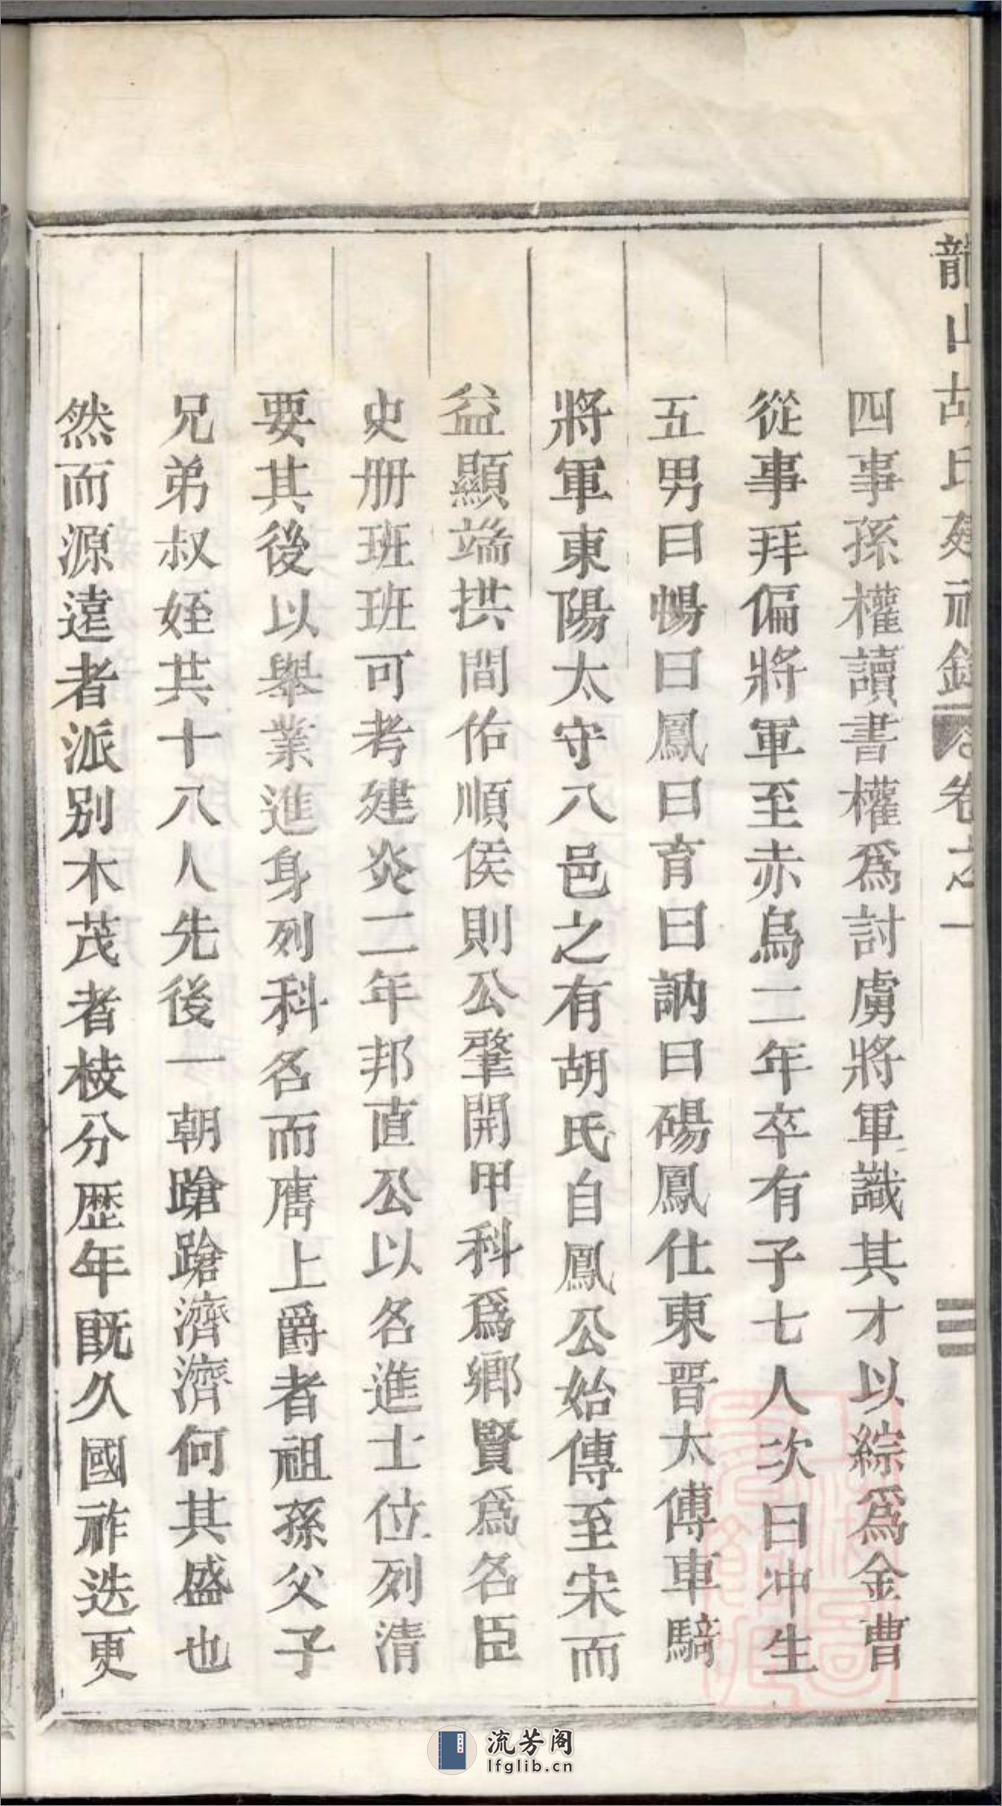 龍山胡氏建祠錄 卷之一
四事孫權讀書權爲討虜將軍識其才以綜爲金曹
從事拜偏將軍至赤烏二年卒有子七人次曰冲生
五男曰暢曰鳳曰育曰訥曰碭鳳仕東晉太傅車騎
將軍東陽太守八邑之有胡氏自鳳公始傳至宋而
益顯端拱間佑順侯則公肇開甲科爲鄉賢爲名臣
史册班班可考建炎二年邦直公以名進士位列清
要其後以舉業進身列科名而膺上爵者祖孫父子
兄弟叔姪共十八人先後一朝蹌蹌濟濟何其盛也
然而源遠者派别木茂者枝分歷年既久國祚迭更
流芳阁
lfglib.cn